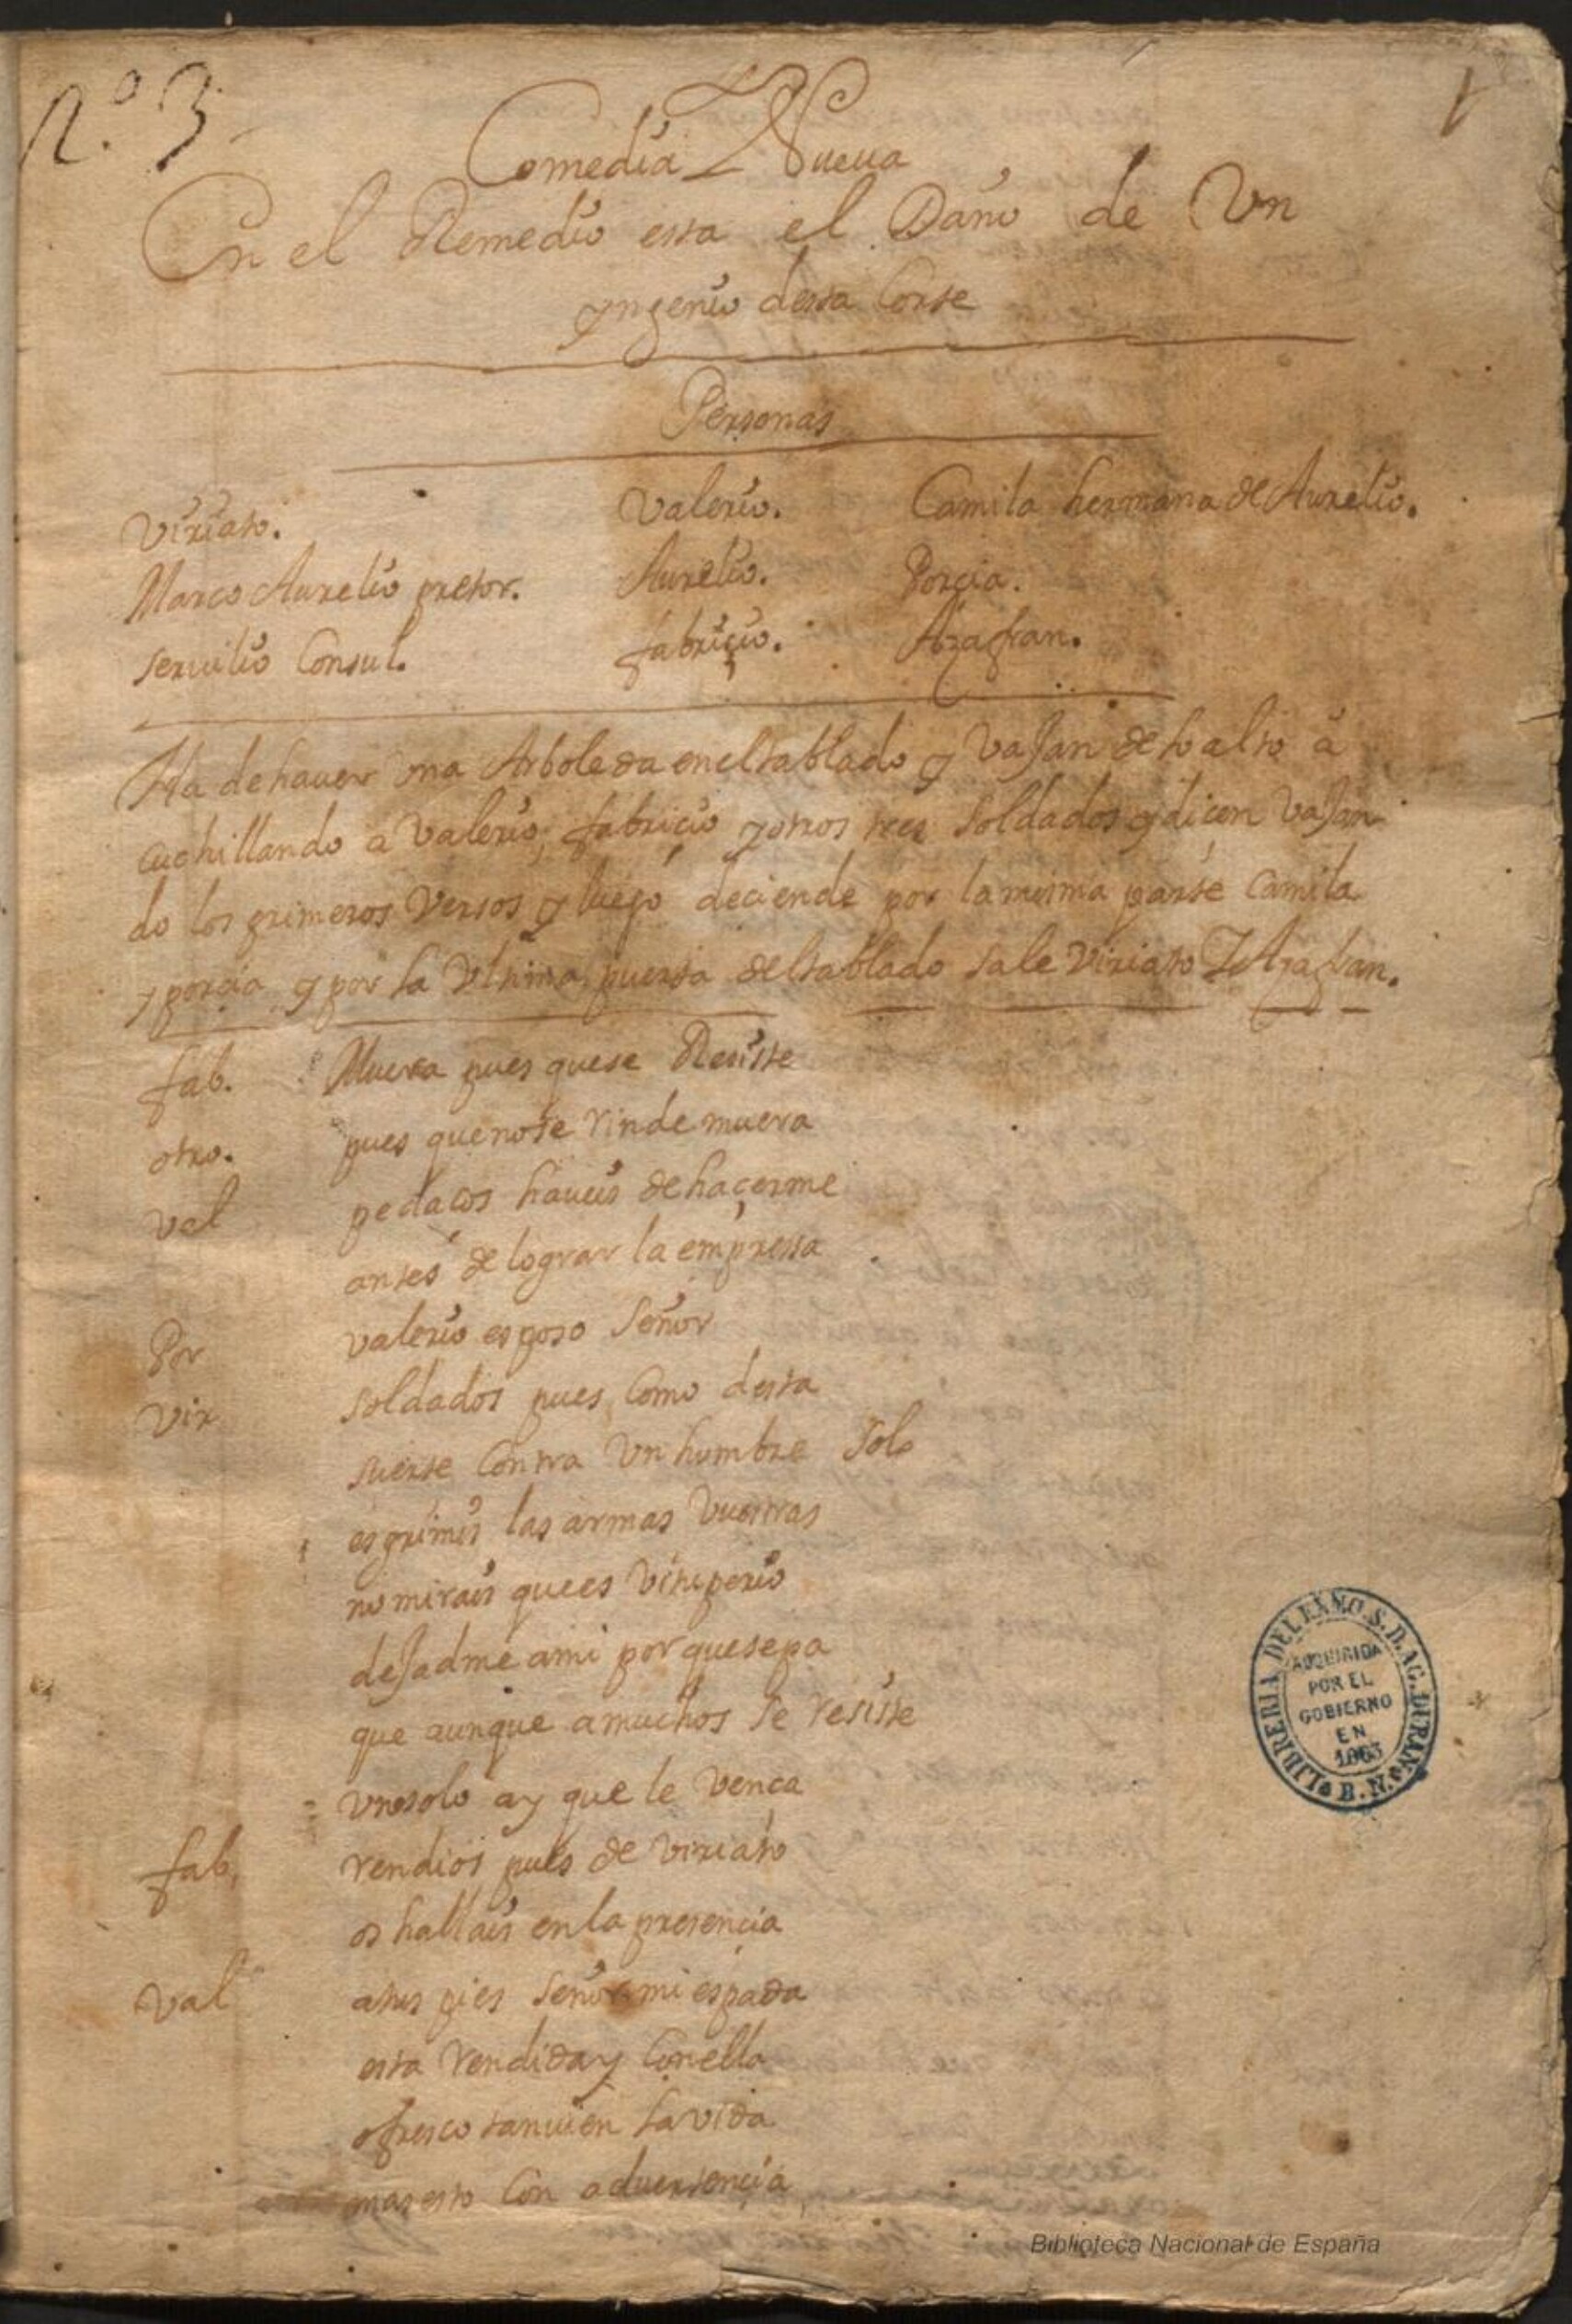 n.º 3
1
Comedia Nueua
En el Remedio esta el Daño de Vn
yngenio desta Corte
Personas
Viriato.
Valerio.
Camila hermana de Aurelio.
Marco Aurelio pretor.
Aurelio.
Porçia.
seruilio Consul.
fabriçio.
Azafran.
Ha de hauer vna Arboleda en el tablado y vaJan de lo alto a
cuchillando a Valerio, fabriçio y otros tres soldados y diçen vaJan
do los primeros versos y luego deciende por la misma parte Camila
y porçia y por la Vltima puerta del tablado sale viriato Y Azafran.
fab. Muera pues que se Resiste
otro. pues que no se rinde muera
val pedaços haueis de haçerme
antes de lograr la empressa
Por valerio esposo Señor
Vir soldados pues como desta
suerte contra Vn hombre solo
esgrimis las armas Vuestras
no mirais que es vituperio
deJadme a mi porque sepa
que aunque a muchos se resiste
vno solo ay que le Vença
fab, rendios pues de viriato
os hallais en la presençia
Val a tus pies señor mi espada
esta rendida y con ella
ofresco tanuien la vida
mas esto con aduertençia
LIBRERIA DEL EXMO. S. D. AG. DURAN
B. N.
ADQUIRIDA
POR EL
GOBIERNO
EN
1863
Biblioteca Nacional de España